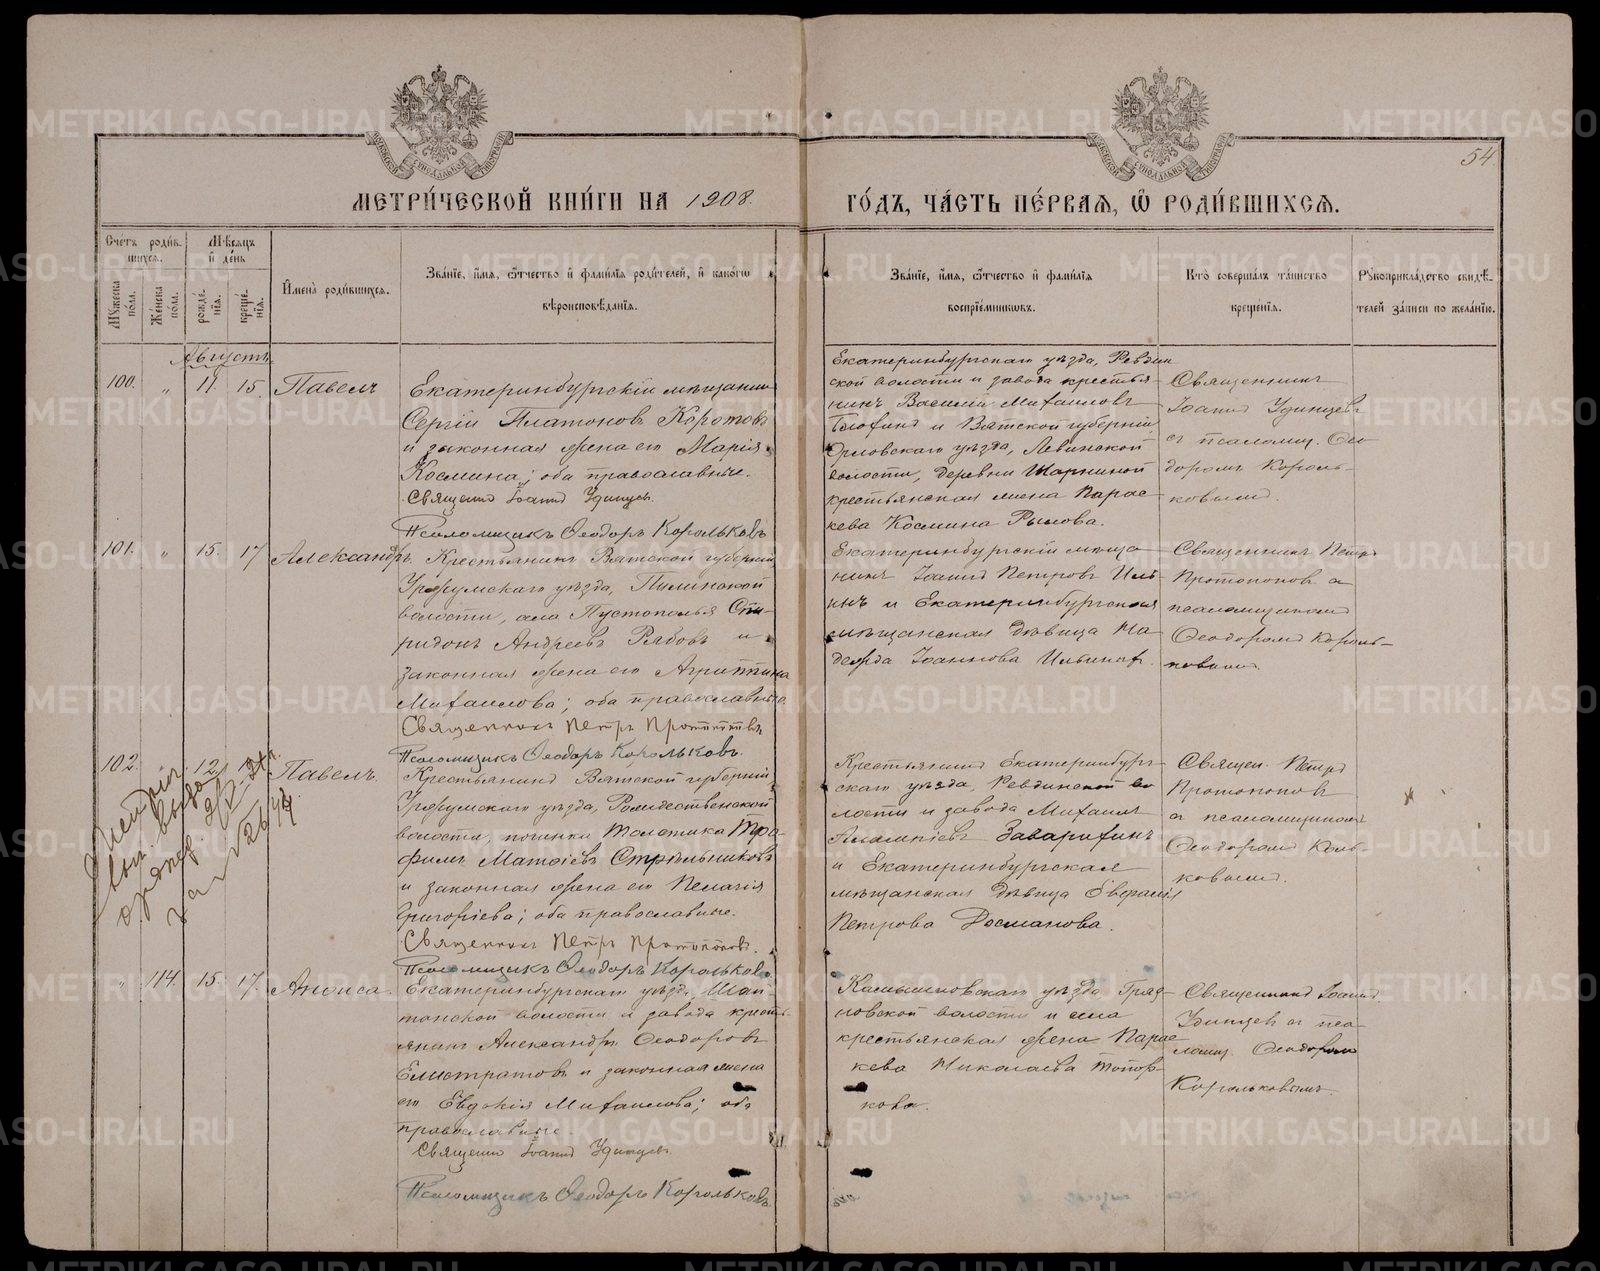 54
МЕТРИ́ЧЕСКОЙ КНИ́ГИ НА 1908.
ГО́ДЪ, ЧА́СТЬ ПЕ́РВАЯ, Ѡ҆ РОДИ́ВШИХСЯ.
Сче́тъ роди́в-
шихся.
Мѣ́сяцъ
и҆ де́нь
Мꙋ́жеска по́ла.
Же́нска по́ла.
рожде́-
нїя.
креще́-
нїя.
И҆мена̀ роди́вшихся.
Зва́нїе, и҆́мя, ѻ҆́тчество и҆ фами́лїя роди́телей, и҆ како́гѡ
вѣроисповѣ́данїя.
Зва́нїе, и҆́мя, ѻ҆́тчество и҆ фами́лїя
воспрїе́мникѡвъ.
Кто̀ соверша́лъ та́инство
креще́нїя.
Рꙋкоприкла́дство свидѣ́-
телей за́писи по жела́нїю.
Августъ
100. „ 11 15. Павелъ
Екатеринбургскій мѣщанин
Сергій Платонов Коротовъ
и законная жена его Марія
Космина; оба православные.
Священ Іоаннъ Удинцев.
Псаломщикъ Ѳеодоръ Корольковъ
Екатеринбургскаго уѣзда, Ревдин
ской волости и завода крестья
нинъ Василій Михаиловъ
и Вятской губерніи
Орловскаго уѣзда, Левинской
волости, деревни
крестьянская жена Парас
кева Космина Рылова.
Священникъ
Іоаннъ Удинцевъ
съ псаломщ. Ѳео
доромъ Король-
ковымъ.
101. „ 15. 17 Александръ.
Крестьянинъ Вятской губерніи
Уржумскаго уѣзда, Пилинской
волости, села Пустополья Спи-
ридонъ Андреевъ Рябовъ и
законная жена его Агриппина
Михаилова; оба православные.
Священникъ Петръ Протопопов
Псаломщикъ Ѳеодоръ Корольковъ.
Екатеринбургскій мѣща
нинъ Іоаннъ Петровъ Иль
инъ и Екатеринбургская
мѣщанская дѣвица На
дежда Іоаннова Ильина.
Священникъ Петръ
Протопопов съ
псаломщикомъ
Ѳеодоромъ Король-
ковымъ.
102. „ 12 17 Павелъ.
Крестьянинъ Вятской губерніи
Уржумскаго уѣзда, Рождественской
волости, починка Тро-
фимъ Матѳіевъ Стрѣльниковъ
и законная жена его Пелагія
Григоріева; оба православные.
Священник Петръ Протопопов.
Псаломщикъ Ѳеодоръ Корольковъ
Крестьянинъ Екатеринбург
скаго уѣзда, Ревдинской во
лости и завода Михаилъ
и Екатеринбургская
мѣщанская дѣвица Евфалія
Петрова Досманова.
Священ. Петръ
Протопопов
съ псаломщикомъ
Ѳеодоромъ Коль-
ковымъ.
„ 114. 15. 17. Анѳиса.
Екатеринбургскаго уѣзда, Шай-
танской волости и завода кресть-
янинъ Александръ Ѳеодоровъ
Елистратовъ и законная жена
его Евдокія Михаилова; оба
православные.
Священ Іоаннъ Удинцев.
Псаломщикъ Ѳеодоръ Корольковъ.
Камышловскаго уѣзда, Гряз-
новской волости и села
крестьянская жена Парас
кева Николаева Топор-
кова.
Священникъ Іоаннъ
Удинцев съ пса-
ломщ. Ѳеодоромъ
Корольковымъ.